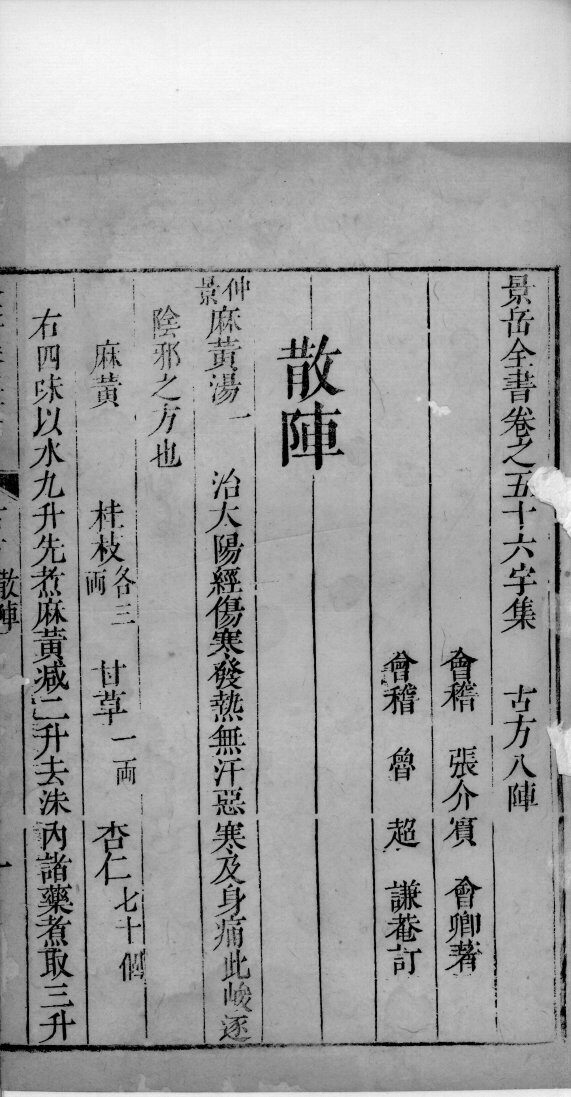 景岳全書卷之五十六宇集　古方八陣
會稽　張介賔　會卿著
會稽　魯超　謙菴訂
散陣
仲景麻黃湯一　治太陽經傷寒發熱無汗惡寒及身痛此峻逐
陰邪之方也
麻黃　桂枝各三兩　甘草一兩　杏仁七十個
右四味以水九升先煮麻黃減二升去沫內諸藥煮取三升
散陣
一